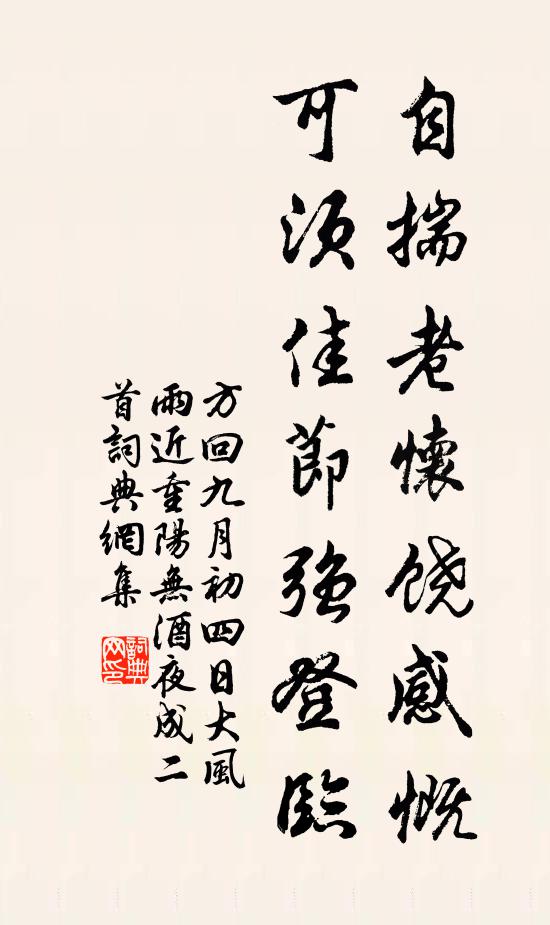 自揣老懷饒感慨
可須佳節強登臨
方回九月初四日大風
雨近重陽無酒夜成二
首詞典網集
詞典網印